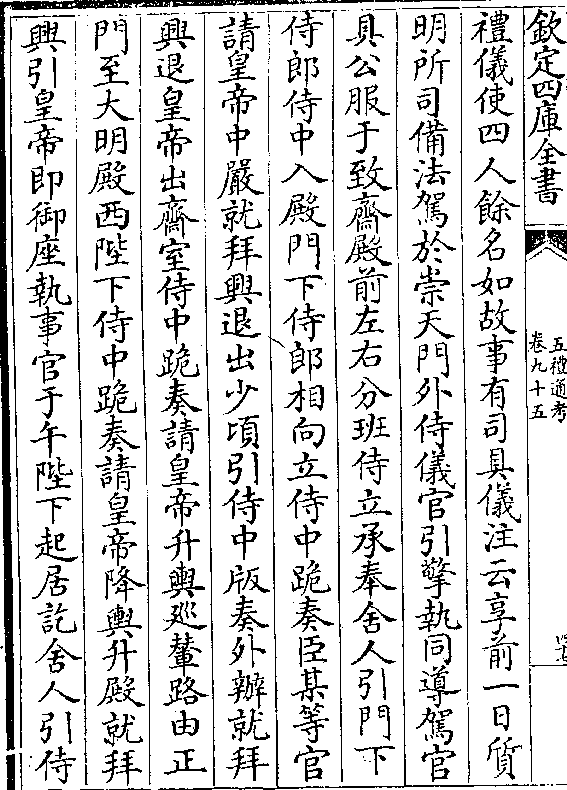 欽定四庫全書
五禮通考
卷九十五
禮儀使四人餘名如故事有司具儀注云享前一日質
明所司備法駕於崇天門外侍儀官引擎執同導駕官
具公服于致齋殿前左右分班侍立承奉舍人引門下
侍郎侍中入殿門下侍郎相向立侍中跪奏臣某等官
請皇帝中嚴就拜興退出少頃引侍中版奏外辦就拜
興退皇帝出齋室侍中跪奏請皇帝升輿廵輦路由正
門至大明殿西陛下侍中跪奏請皇帝降輿升殿就拜
興引皇帝即御座執事官于午陛下起居訖舍人引侍